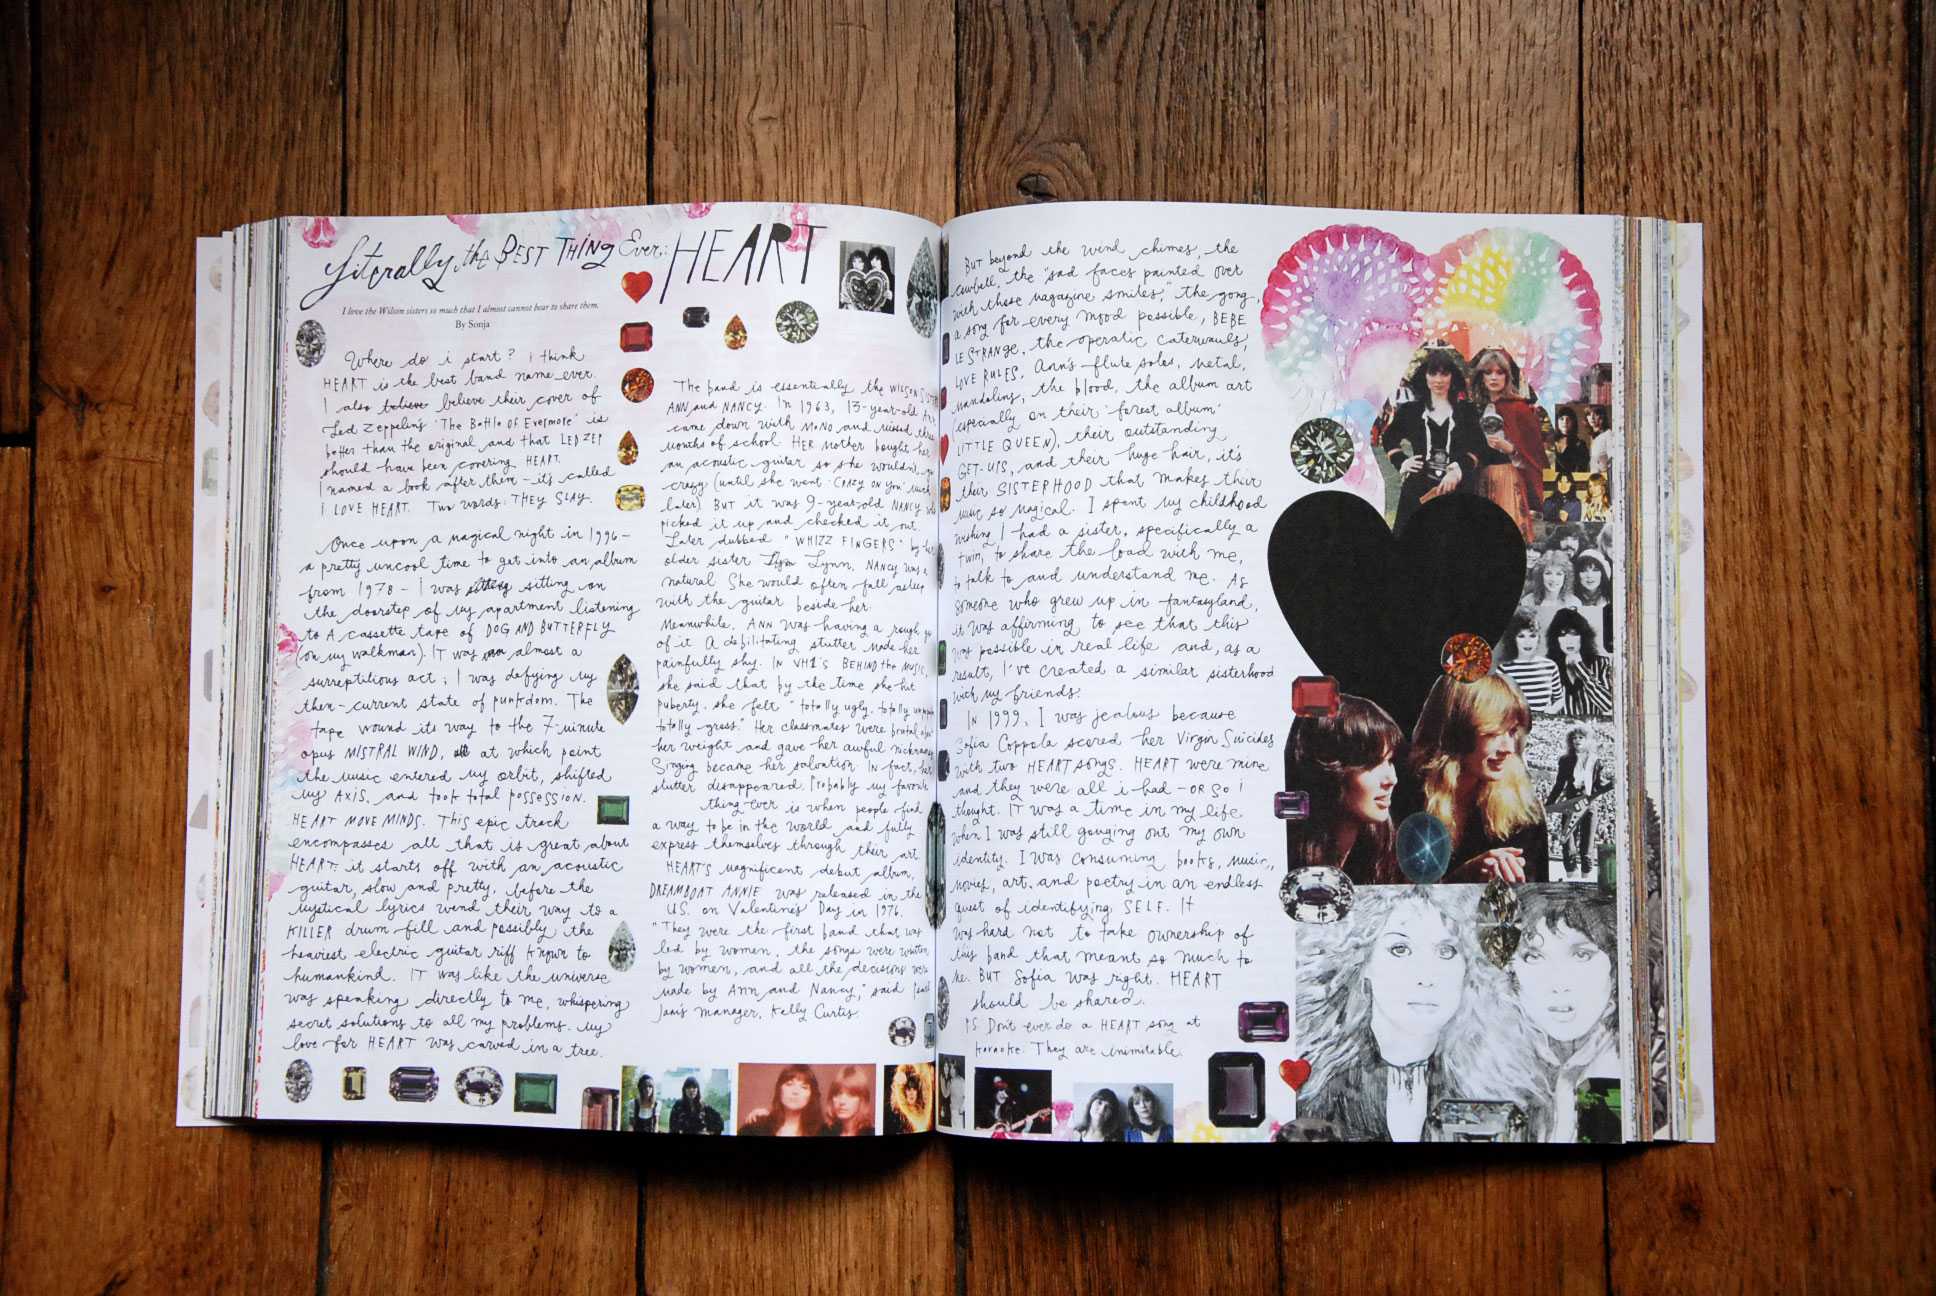 Literally the BEST THING Ever: HEART
I love the Wilson sisters so much that I almost cannot bear to share them.
By Sonja
Where do i start? i think
HEART is the best band name ever.
I also believe believe their cover of
Led Zeppelin's "The Battle of Evermore" is
better than the original and that LED ZEP
should have been covering HEART.
I named a book after them – it's called
I LOVE HEART. Two words: THEY SLAY.
Once upon a magical night in 1996 –
a pretty uncool time to get into an album
from 1978 – I was sitting on
the doorstep of my apartment listening
to A cassette tape of DOG AND BUTTERFLY
(on my walkman). IT was almost a
surreptitious act; I was defying my
then-current state of punkdom. The
tape wound its way to the 7-minute
opus MISTRAL WIND, at which point
the music entered my orbit, shifted
my AXIS, and took total possession.
HEART MOVE MINDS. This epic track
encompasses all that is great about
HEART: it starts off with an acoustic
guitar, slow and pretty, before the
mystical lyrics wend their way to a
KILLER drum fill and possibly the
heaviest electric guitar riff known to
humankind. IT was like the universe
was speaking directly to me, whispering
secret solutions to all my problems. My
love for HEART was carved in a tree.
The band is essentially the WILSON
ANN and NANCY. In 1963, 13-year-old Ann
came down with MONO and missed three
months of school. HER mother bought her
an acoustic guitar so she wouldn't go
crazy (until she went "CRAZY ON YOU" much
later). BUT it was 9-year-old NANCY who
picked it up and checked it out.
Later dubbed "WHIZZ FINGERS" by her
older sister Lynn, NANCY was a
natural. She would often fall asleep
with the guitar beside her.
Meanwhile, ANN was having a rough go
of it. A debilitating stutter made her
painfully shy. IN VH1'S BEHIND the MUSIC,
she said that by the time she hit
puberty, she felt "totally ugly, totally
totally gross." Her classmates were brutal about
her weight and gave her awful nicknames.
Singing became her salvation. IN fact, her
stutter disappeared. Probably my favorite
thing ever is when people find
a way to be in the world and fully
express themselves through their art.
HEART'S magnificent debut album,
DREAMBOAT ANNIE was released in the
U.S. on Valentine's Day in 1976.
"They were the first band that was
led by women, the songs were written
by women, and all the decisions were
made by Ann and Nancy," said
manager, Kelly Curtis.
BUT beyond the wind chimes, the
cowbell, the "sad faces painted over
with those magazine smiles," the gong,
a song for every mood possible, BEBE
LE STRANGE, the operatic caterwauls,
LOVE RULES, Ann's flute solos, metal,
mandolins, the blood, the album art
(especially on their 'forest album'
LITTLE QUEEN), their outstanding
GET-UPS, and their huge hair, it's
their SISTERHOOD that makes their
music so magical. I spent my childhood
wishing I had a sister, specifically a
twin, to share the load with me,
to talk to and understand me. As
someone who grew up in fantasyland,
it was affirming to see that this
was possible in real life and, as a
result, I've created a similar sisterhood
with my friends.
IN 1999, I was jealous because
Sofia Coppola scored her Virgin Suicides
with two HEART songs. HEART were mine
and they were all i had – OR SO I
thought. IT was a time in my life
when I was still gouging out my own
identity. I was consuming books, music,
movies, art, and poetry in an endless
quest of identifying SELF. It
was hard not to take ownership of
this band that meant so much to
me. BUT Sofia was right. HEART
should be shared.
PS Don't ever do a HEART song at
karaoke. They are inimitable.